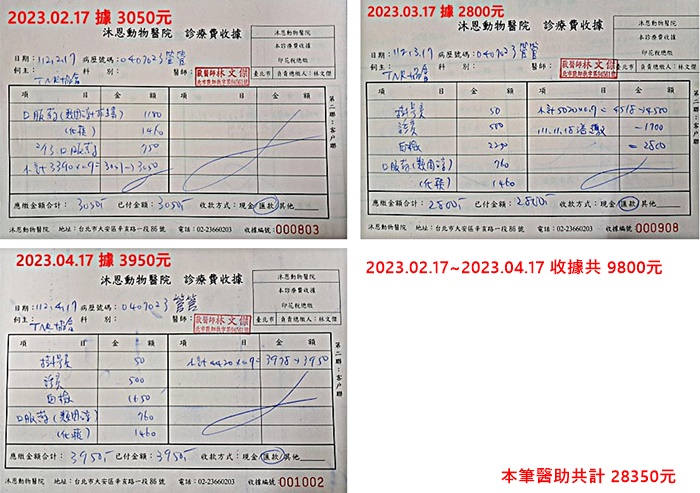 2023.02.17 據 3050元
沐恩動物醫院 診療費收據
沐恩動物醫院
本診療費收據
印花稅總繳
日期:112,2,17 病歷號碼:040703 管管
飼主: TNR協會 科別: 醫師: 獸醫師林文傑
臺北市 負責總繳人:林文傑
項 目 金 額 項 目 金 額
1180
1460
2931 口服藥 750
小計3390×0.9=3051→3050
應繳金額合計: 3050- 已付金額: 3050- 收款方式:現金/匯款/其他
沐恩動物醫院 地址:台北市大安區辛亥路一段86號 電話:02-23660203 收據編號:000803
第二聯:客戶聯
2023.03.17 據 2800元
沐恩動物醫院 診療費收據
沐恩動物醫院
本診療費收據
印花稅總繳
日期:112,3,17 病歷號碼:040703 管管
飼主: TNR協會 科別: 醫師: 獸醫師林文傑
臺北市 負責總繳人:林文傑
項 目 金 額 項 目 金 額
掛號費 50 小計5020×0.9=4518→4500
診費 500 111.11.18 -1700
血檢 2250 =2800
口服藥 760
1460
應繳金額合計: 2800- 已付金額: 2800- 收款方式:現金/匯款/其他
沐恩動物醫院 地址:台北市大安區辛亥路一段86號 電話:02-23660203 收據編號:000908
第二聯:客戶聯
2023.04.17 據 3950元
沐恩動物醫院 診療費收據
沐恩動物醫院
本診療費收據
印花稅總繳
日期:112,4,17 病歷號碼:040703 管管
飼主: TNR協會 科別: 醫師: 獸醫師林文傑
臺北市 負責總繳人:林文傑
項 目 金 額 項 目 金 額
掛號費 50 小計4420×0.9=3978→3950
診費 500
血檢 1650
口服藥 760
1460
應繳金額合計: 3950- 已付金額: 3950- 收款方式:現金/匯款/其他
沐恩動物醫院 地址:台北市大安區辛亥路一段86號 電話:02-23660203 收據編號:001002
第二聯:客戶聯
2023.02.17~2023.04.17 收據共 9800元
本筆醫助共計 28350元